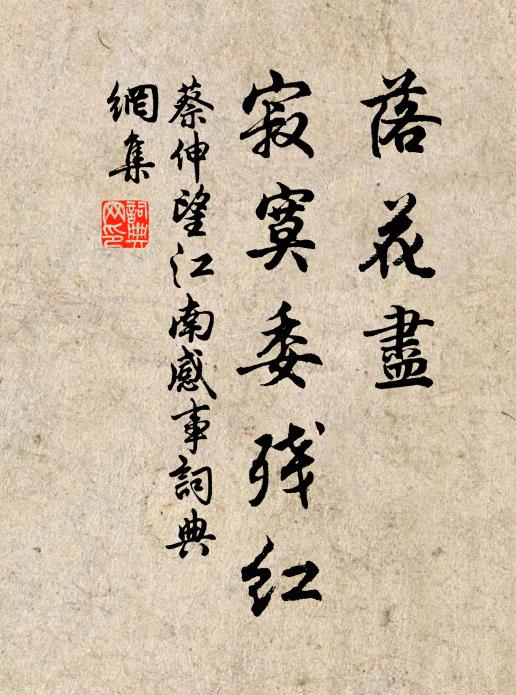 落花盡
寂寞委残红
蔡伸望江南感事詞典
網集
詞典
网印